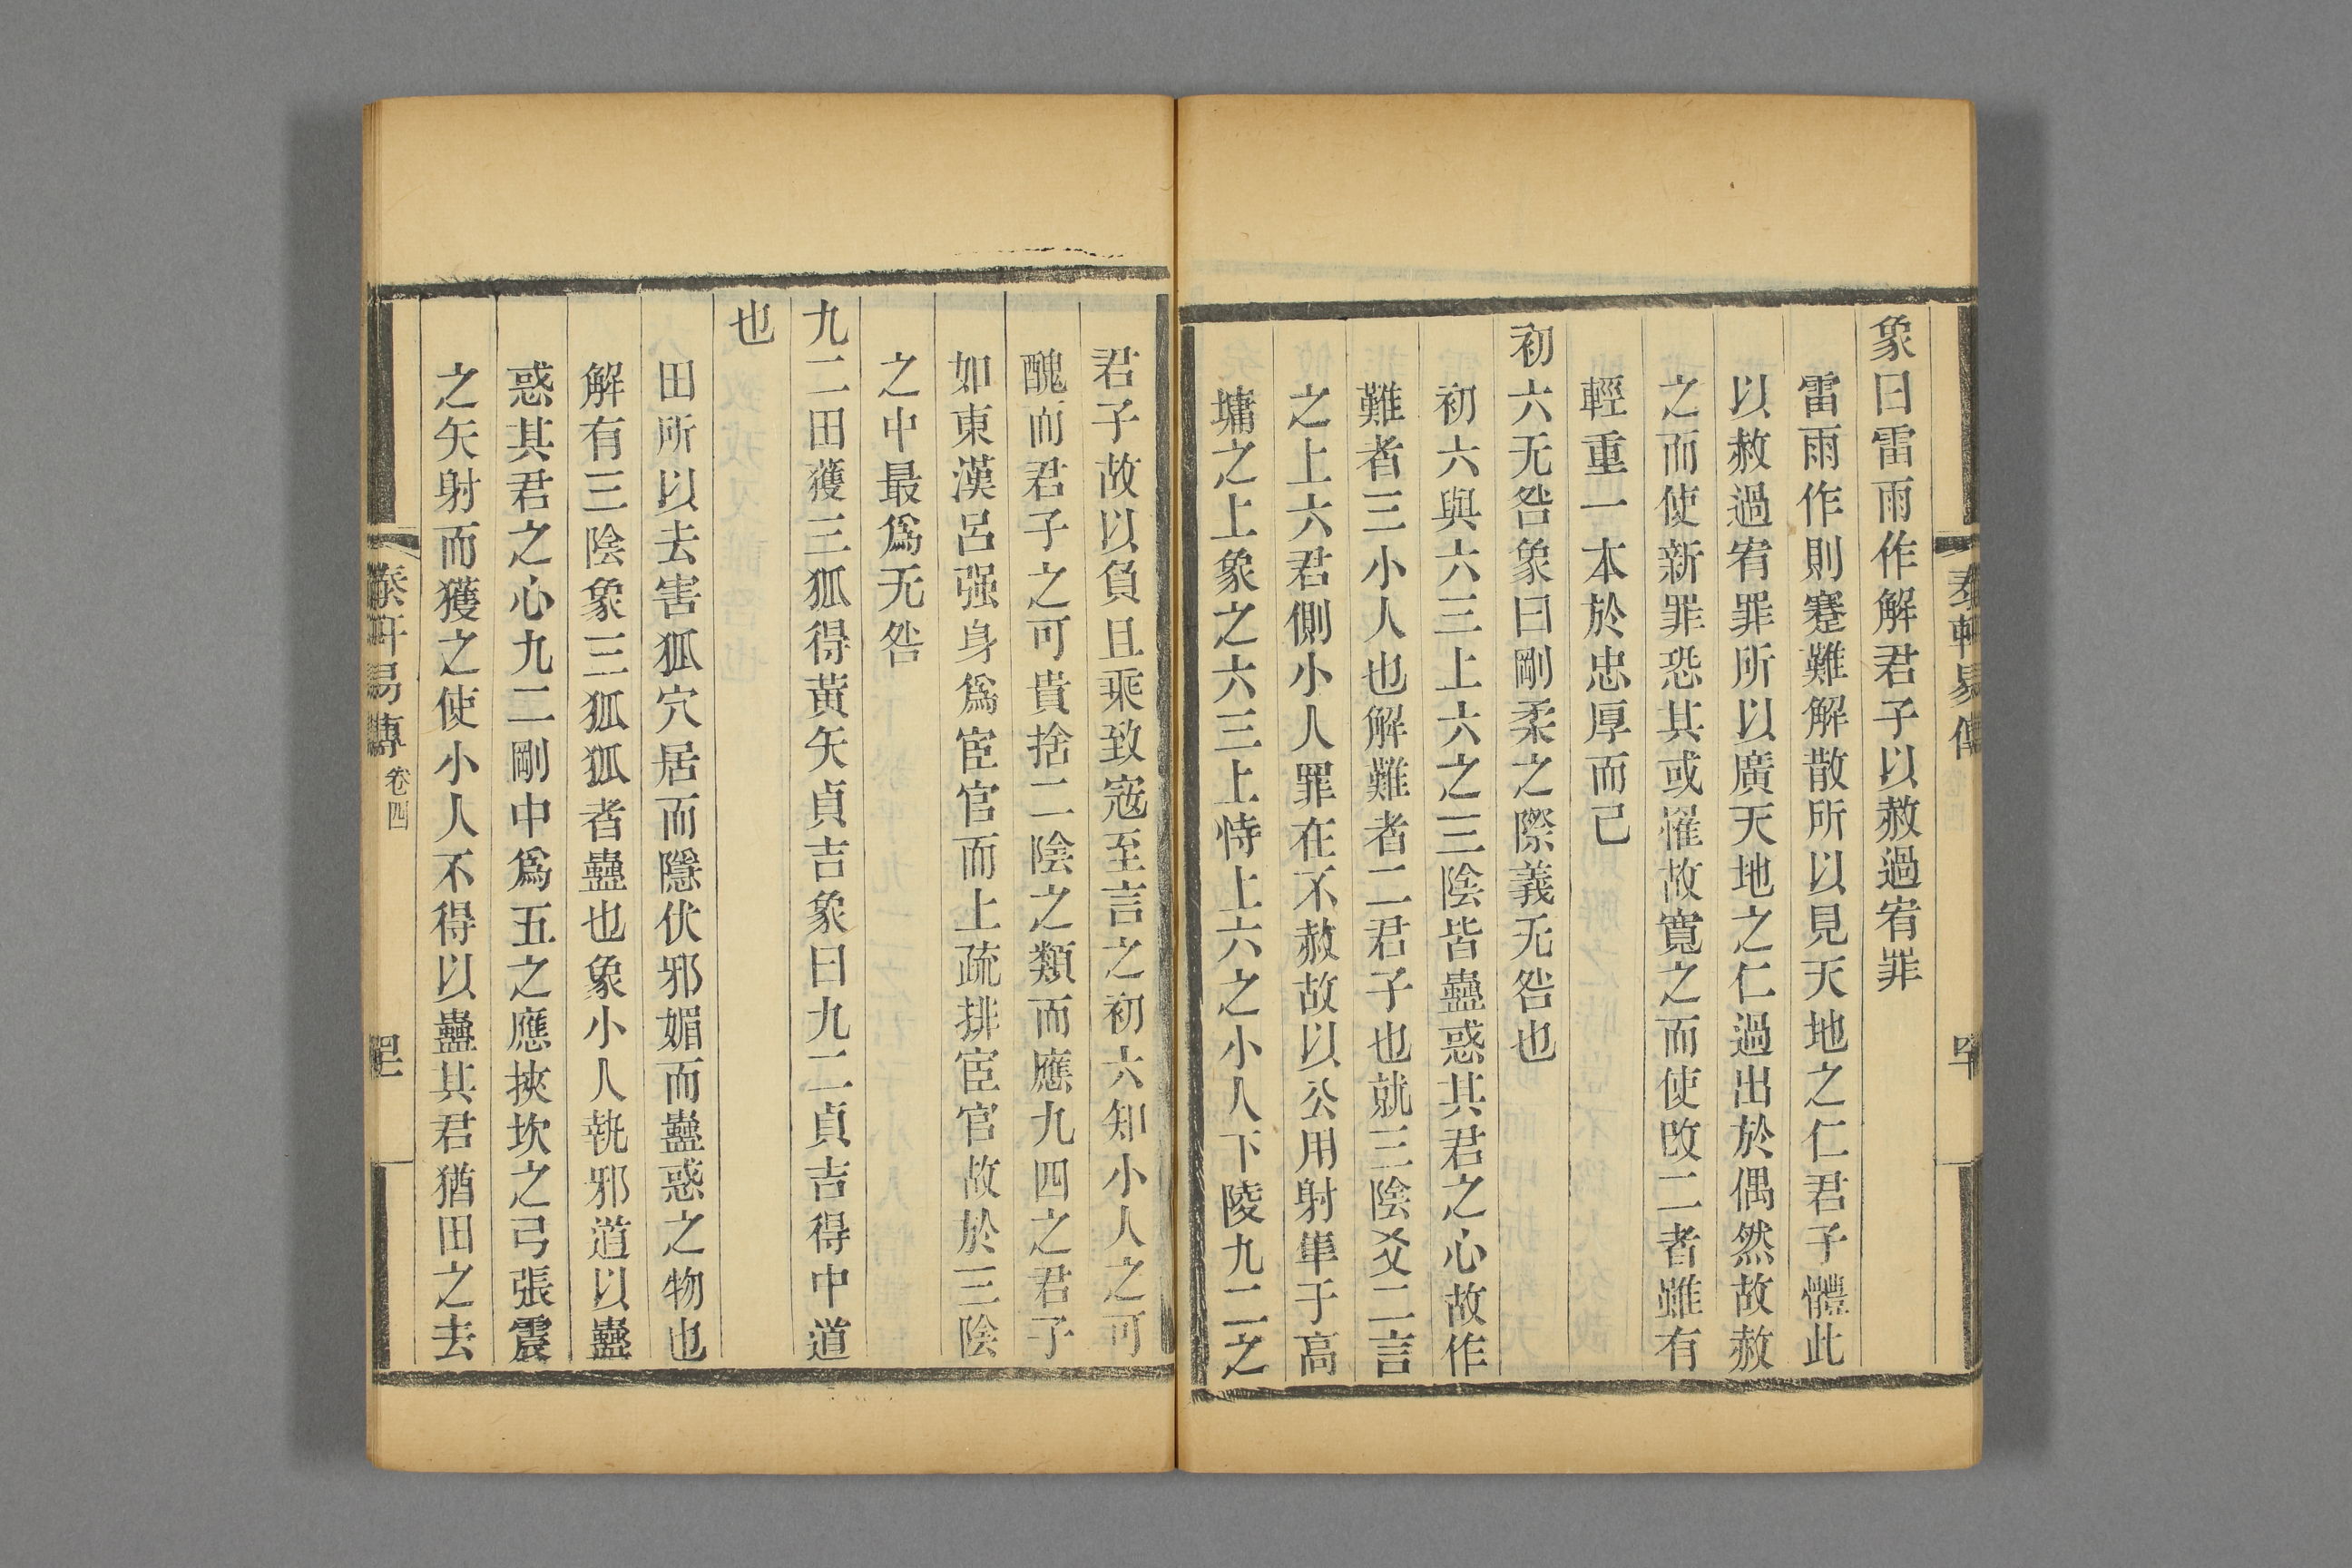 象曰雷雨作解君子以赦過宥罪
雷雨作則蹇難解散所以見天地之仁君子體此
以赦過宥罪所以廣天地之仁過出於偶然故赦
之而使新罪恐其或罹故寬之而使改二者雖有
輕重一本於忠厚而己
初六无咎象曰剛柔之際義无咎也
初六與六三上六之三陰皆蠱惑其君之心故作
難者三小人也解難者二君子也就三陰爻二言
之上六君側小人罪在不赦故以公用射隼于高
墉之上象之六三上恃上六之小人下陵九二之
君子故以負且乘致寇至言之初六知小人之可
醜而君子之可貴捨二陰之類而應九四之君子
如東漢呂强身爲宦官而上疏排宦官故於三陰
之中最爲无咎
九二田獲三狐得黃矢貞吉象曰九二貞吉得中道
也
田所以去害狐穴居而隱伏邪媚而蠱惑之物也
解有三陰象三狐狐者蠱也象小人執邪道以蠱
惑其君之心九二剛中爲五之應挾坎之弓張震
之矢射而獲之使小人不得以蠱其君猶田之去
易傳 卷四